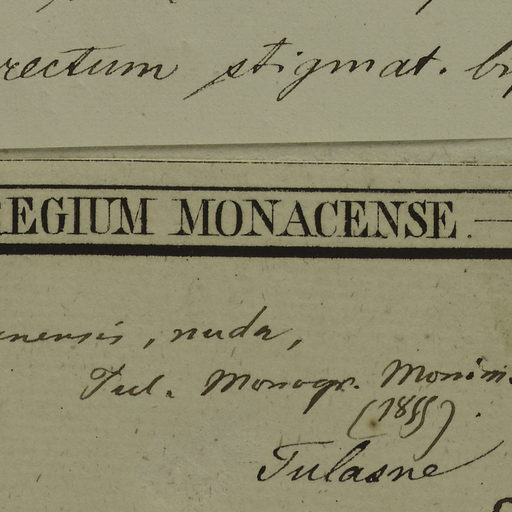 rectum stigmat. by
REGIUM MONACENSE
nensis, nuda,
Tul. Monogr. Monim.
(1855).
Tulasne